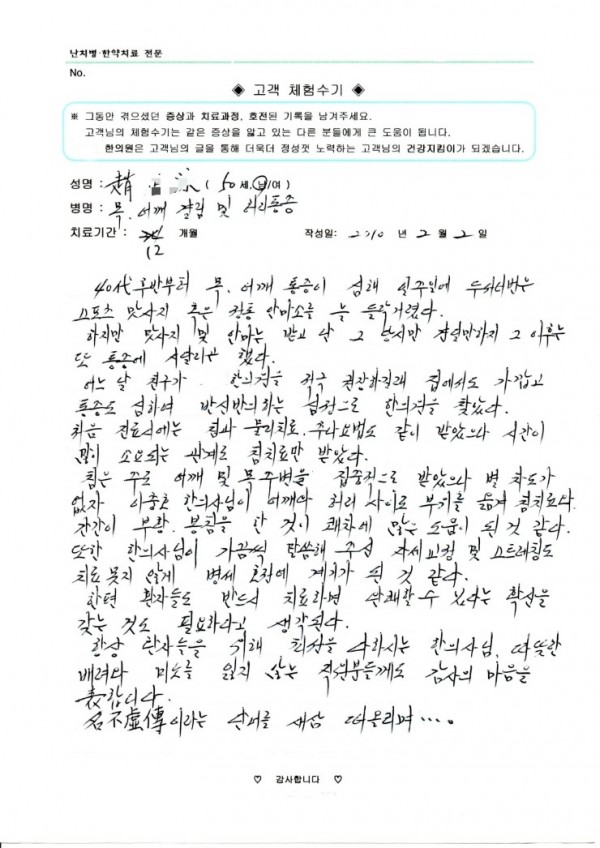 난치병·한약치료 전문
No.
◈ 고객 체험수기 ◈
※ 그동안 겪으셨던 증상과 치료과정, 호전된 기록을 남겨주세요.
고객님의 체험수기는 같은 증상을 앓고 있는 다른 분들에게 큰 도움이 됩니다.
한의원은 고객님의 글을 통해 더욱더 정성껏 노력하는 고객님의 건강지킴이가 되겠습니다.
성명 : 趙 ( 50 세, 남/여 )
병명 : 목, 어깨 결림 및 허리통증
치료기간 : 개월 작성일: 2010 년 2 월 2 일
12
40代 후반부터 목, 어깨 통증이 심해 일주일에 두서너번은
스포츠 맛사지 혹은 정통 안마소를 늘 들락거렸다.
하지만 맛사지 및 안마는 받고 난 그 당시만 견딜만하지 그 이후는
또 통증에 시달리곤 했다.
어느 날 친구가 한의원을 적극 권한하길래 집에서도 가깝고
통증도 심하여 반신반의하는 심정으로 한의원을 찾았다.
처음 진료시에는 침과 물리치료, 추나요법도 같이 받았으나 시간이
많이 소요되는 관계로 침치료만 받았다.
침은 주로 어깨 및 목주변을 집중적으로 받았으나 별 차도가
없자 이종호 한의사님이 어깨와 허리 사이로 부위를 옮겨 침치료와
간간이 부항, 봉침을 한 것이 쾌차에 많은 도움이 된 것 같다.
또한 한의사님이 가끔씩 말씀해 주신 자세교정 및 스트레칭도
치료못지 않게 병세 호전에 계기가 된 것 같다.
한편 환자들도 반드시 치료하면 완쾌할 수 있다는 확신을
갖는 것도 필요하다고 생각된다.
항상 환자들을 위해 최선을 다하시는 한의사님, 따뜻한
배려와 미소를 잃지 않는 직원분들께도 감사의 마음을
表합니다.
名不虛傳이라는 단어를 새삼 떠올리며‥‥。
♡ 감사합니다 ♡